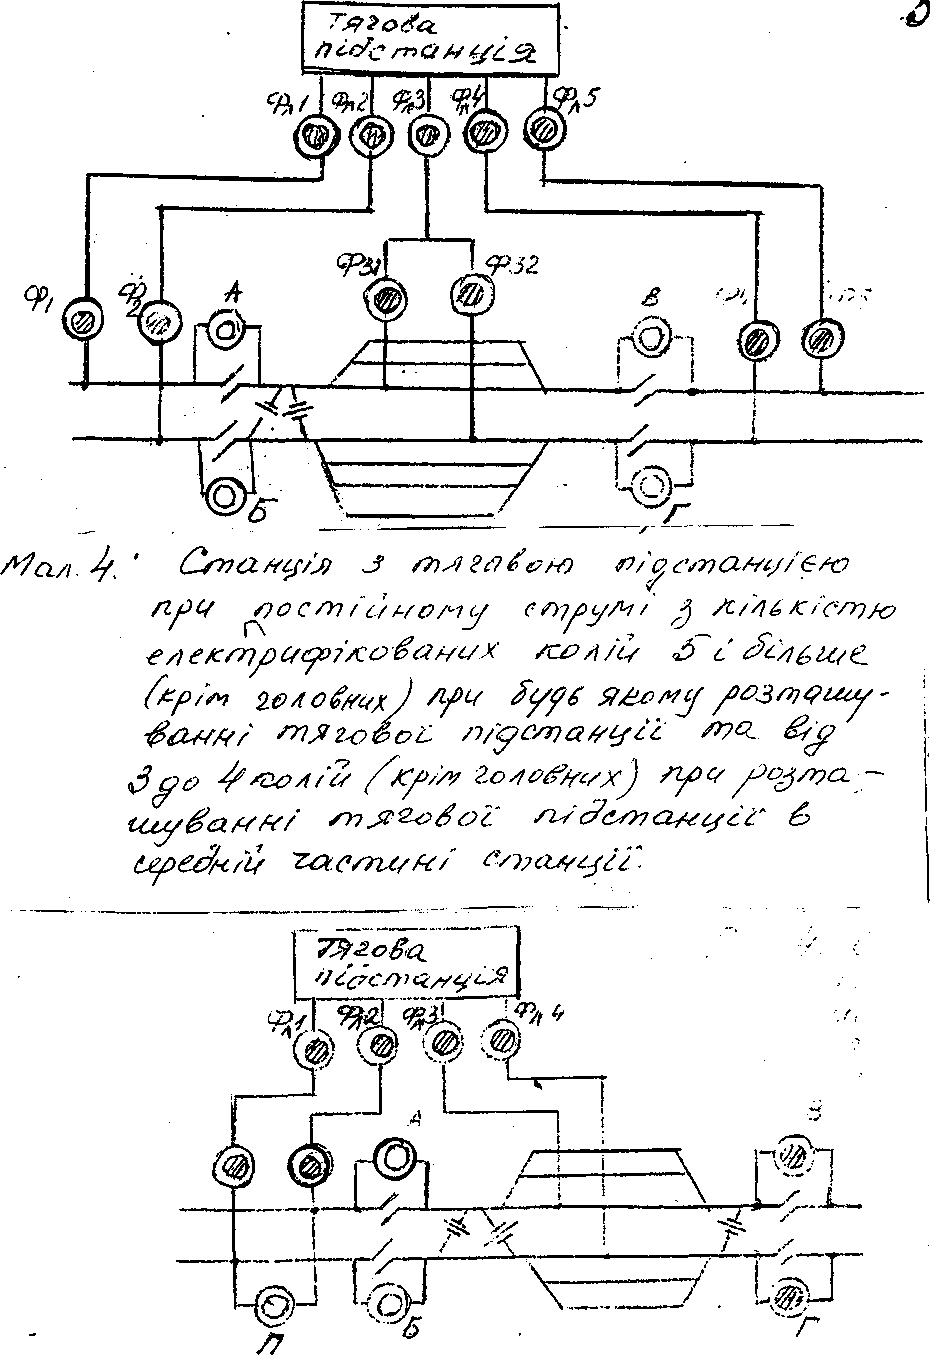 5
Тягова
підстанція
Фл1 Фл2 Фл3 Фл4 Фл5
Ф31 Ф32
Ф1 Ф2 А В
Б Г
Мал. 4. Станція з тяговою підстанцією
при постійному струмі з кількістю
електрифікованих колій 5 і більше
(крім головних) при будь якому розташу-
ванні тягової підстанції та від
3 до 4 колій (крім головних) при розта-
шуванні тягової підстанції в
середній частині станції.
Тягова
підстанція
Фл1 Фл2 Фл3 Фл4
А В
П Б Г